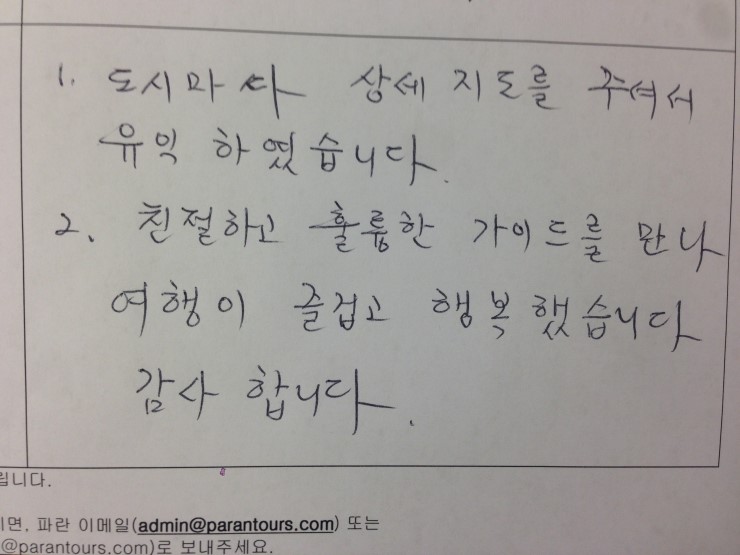 1. 도시마다 상세 지도를 주셔서
유익 하였습니다.
2. 친절하고 훌륭한 가이드를 만나
여행이 즐겁고 행복했습니다
감사 합니다.
립니다.
시면, 파란 이메일(admin@parantours.com) 또는
@parantours.com)로 보내주세요.